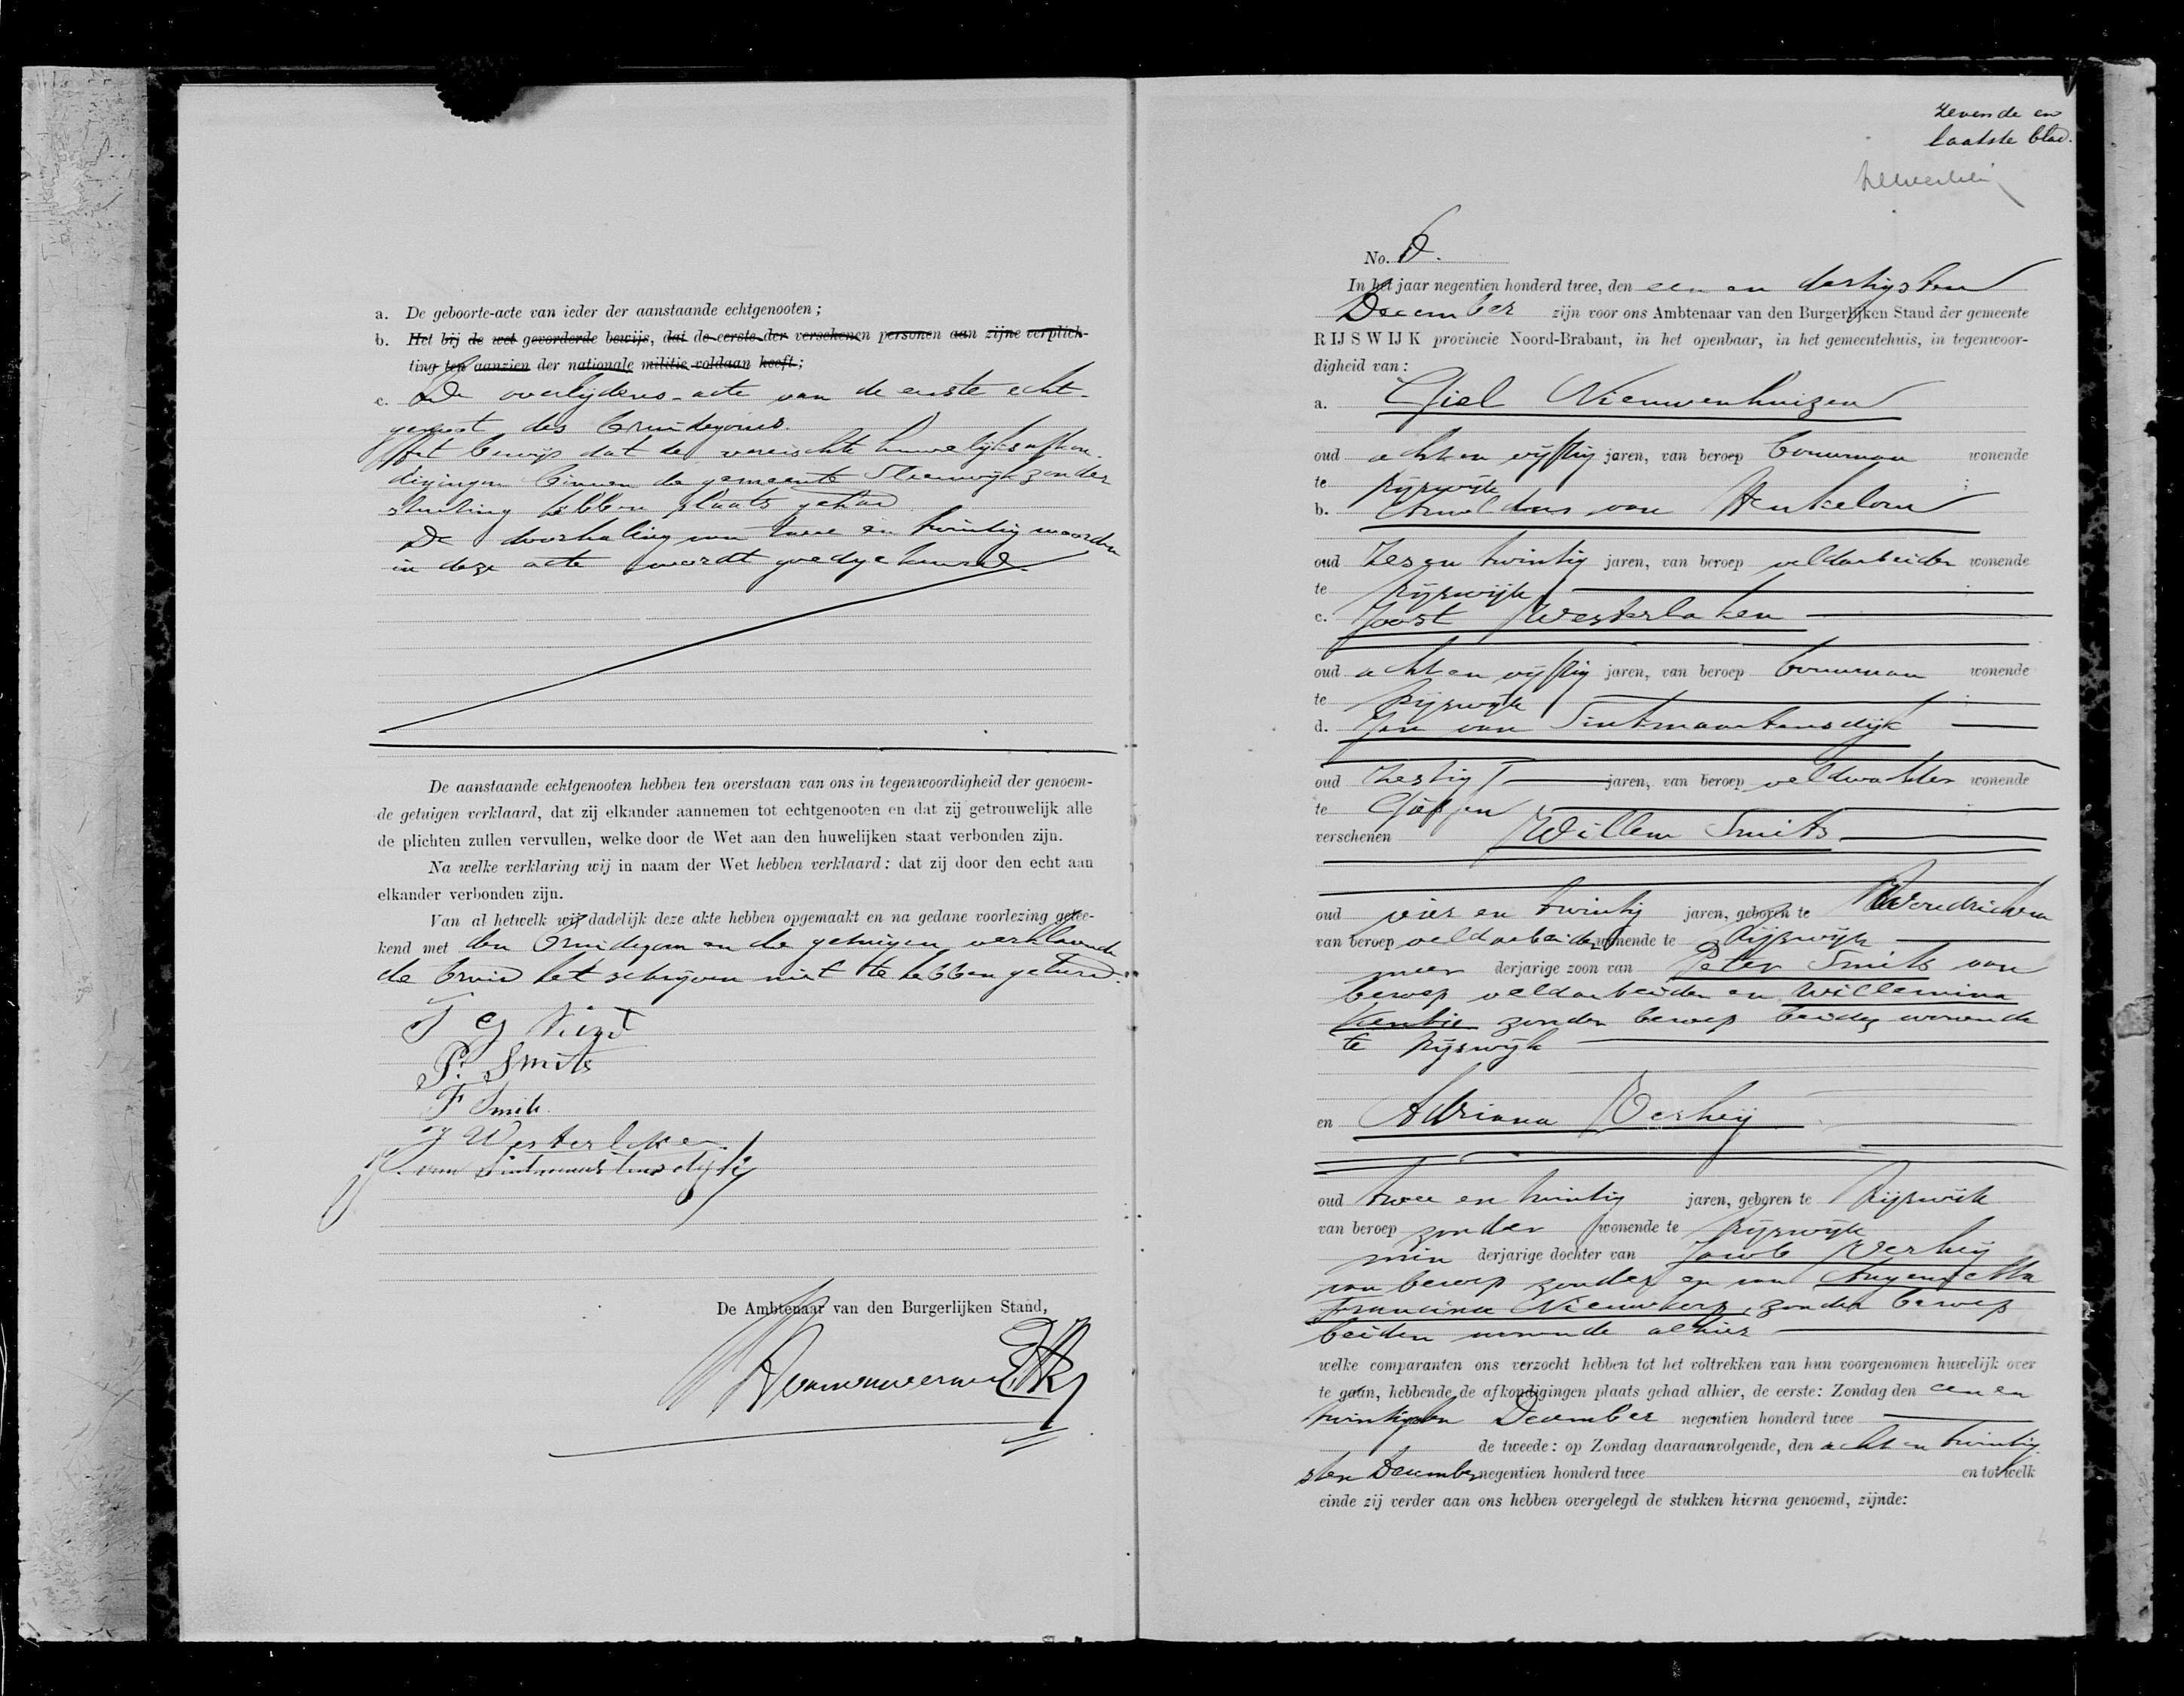 a. De geboorte-acte van ieder der aanstaande echtgenooten;
b. Het bij de wet gevorderde bewijs, dat de eerste der verschenen personen aan zijne verplich-
ting ten aanzien der nationale militie voldaan heeft;
c. De overlijdens-acte van de eerste echt-
genoot des bruidegoms.
Het bewijs dat de vereischte huwelijksafkon-
digingen binnen de gemeente Sleeuwijk zonder
stuiting hebben plaats gehad
De doorhaling van twee en twintig woorden
in deze acte wordt goedgekeurd.
De aanstaande echtgenooten hebben ten overstaan van ons in tegenwoordigheid der genoem-
de getuigen verklaard, dat zij elkander aannemen tot echtgenooten en dat zij getrouwelijk alle
de plichten zullen vervullen, welke door de Wet aan den huwelijken staat verbonden zijn.
Na welke verklaring wij in naam der Wet hebben verklaard: dat zij door den echt aan
elkander verbonden zijn.
Van al hetwelk wij dadelijk deze akte hebben opgemaakt en na gedane voorlezing getee-
kend met den bruidegom en de getuigen verklarende
de bruid het schrijven niet te hebben geleerd.
P. Smits
F Smits
J Westerlaken
J. van Sintmaartensdijk
De Ambtenaar van den Burgerlijken Stand,
Zevende en
laatste blad.
No. 6.
In het jaar negentien honderd twee, den een en dertigsten
December zijn voor ons Ambtenaar van den Burgerlijken Stand der gemeente
RIJSWIJK provincie Noord-Brabant, in het openbaar, in het gemeentehuis, in tegenwoor-
digheid van:
a. Giel Nieuwenhuizen
oud acht en vijftig jaren, van beroep bouwman wonende
te Rijswijk ;
b. Arnoldus van Heukelom
oud zes en twintig jaren, van beroep veldarbeider wonende
te Rijswijk ;
c. Joost Westerlaken
oud acht en vijftig jaren, van beroep bouwman wonende
te Rijswijk ;
d. Jan van Sintmaartensdijk
oud zestig jaren, van beroep veldwachter wonende
te Giessen
verschenen Willem Smits
oud vier en twintig jaren, geboren te Woudrichem
van beroep veldarbeider wonende te Rijswijk
meer derjarige zoon van Peter Smits van
beroep veldarbeider en Willemina
Kentie zonder beroep beiden wonende
te Rijswijk
en Adriana Verheij
oud twee en twintig jaren, geboren te Rijswijk
van beroep zonder wonende te Rijswijk
min derjarige dochter van Jacob Verheij
van beroep zonder en van
Francina Nieuwkerk, zonder beroep
beiden wonende alhier
welke comparanten ons verzocht hebben tot het voltrekken van hun voorgenomen huwelijk over
te gaan, hebbende de afkondigingen plaats gehad alhier, de eerste: Zondag den een en
twintigsten December negentien honderd twee
de tweede: op Zondag daaraanvolgende, den acht en twintig
sten December negentien honderd twee en tot welk
einde zij verder aan ons hebben overgelegd de stukken hierna genoemd, zijnde: